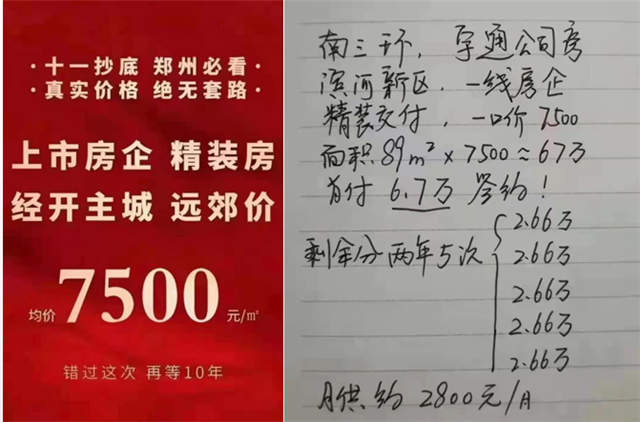 ·十一抄底 郑州必看·
·真实价格 绝无套路·
上市房企 精装房
经开主城 远郊价
均价7500元/㎡
错过这次 再等10年
南三环，宇通公司房
滨河新区，一线房企
精装交付，一口价7500
面积89m²×7500≈67万
首付6.7万签约！
剩余分两年5次
2.66万
2.66万
2.66万
2.66万
2.66万
月供约2800元/月